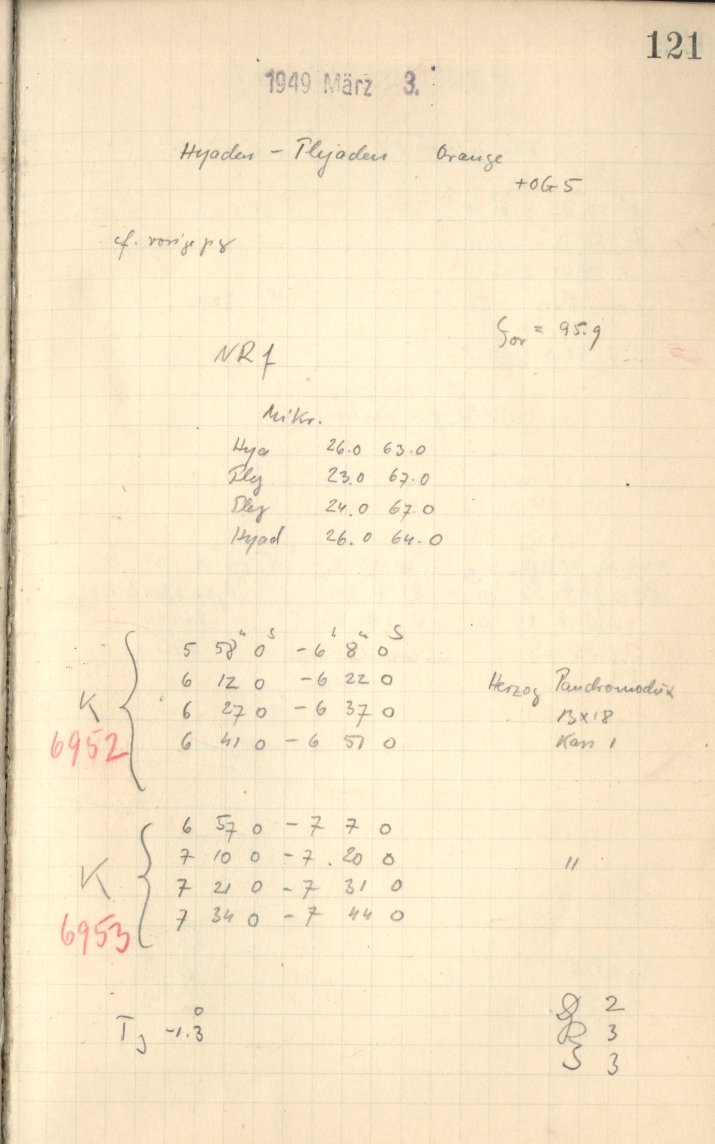 121
1949 März 3.
Hyaden - Plejaden Orange
+OG5
cf. vorige pg
= 95.9
NR f
Mikr.
Hya 26.0 63.0
Plej 23.0 67.0
Plej 24.0 67.0
Hyad 26.0 64.0
5 58 0 - 6 8 0
6 12 0 - 6 22 0 Herzog Pandromodux
K 6 27 0 - 6 37 0 13x18
6952 6 41 0 - 6 51 0 Kass 1
6 57 0 - 7 7 0
7 10 0 - 7 20 0 "
K 7 21 0 - 7 31 0
6953 7 34 0 - 7 44 0
2
T -1.3° 3
3